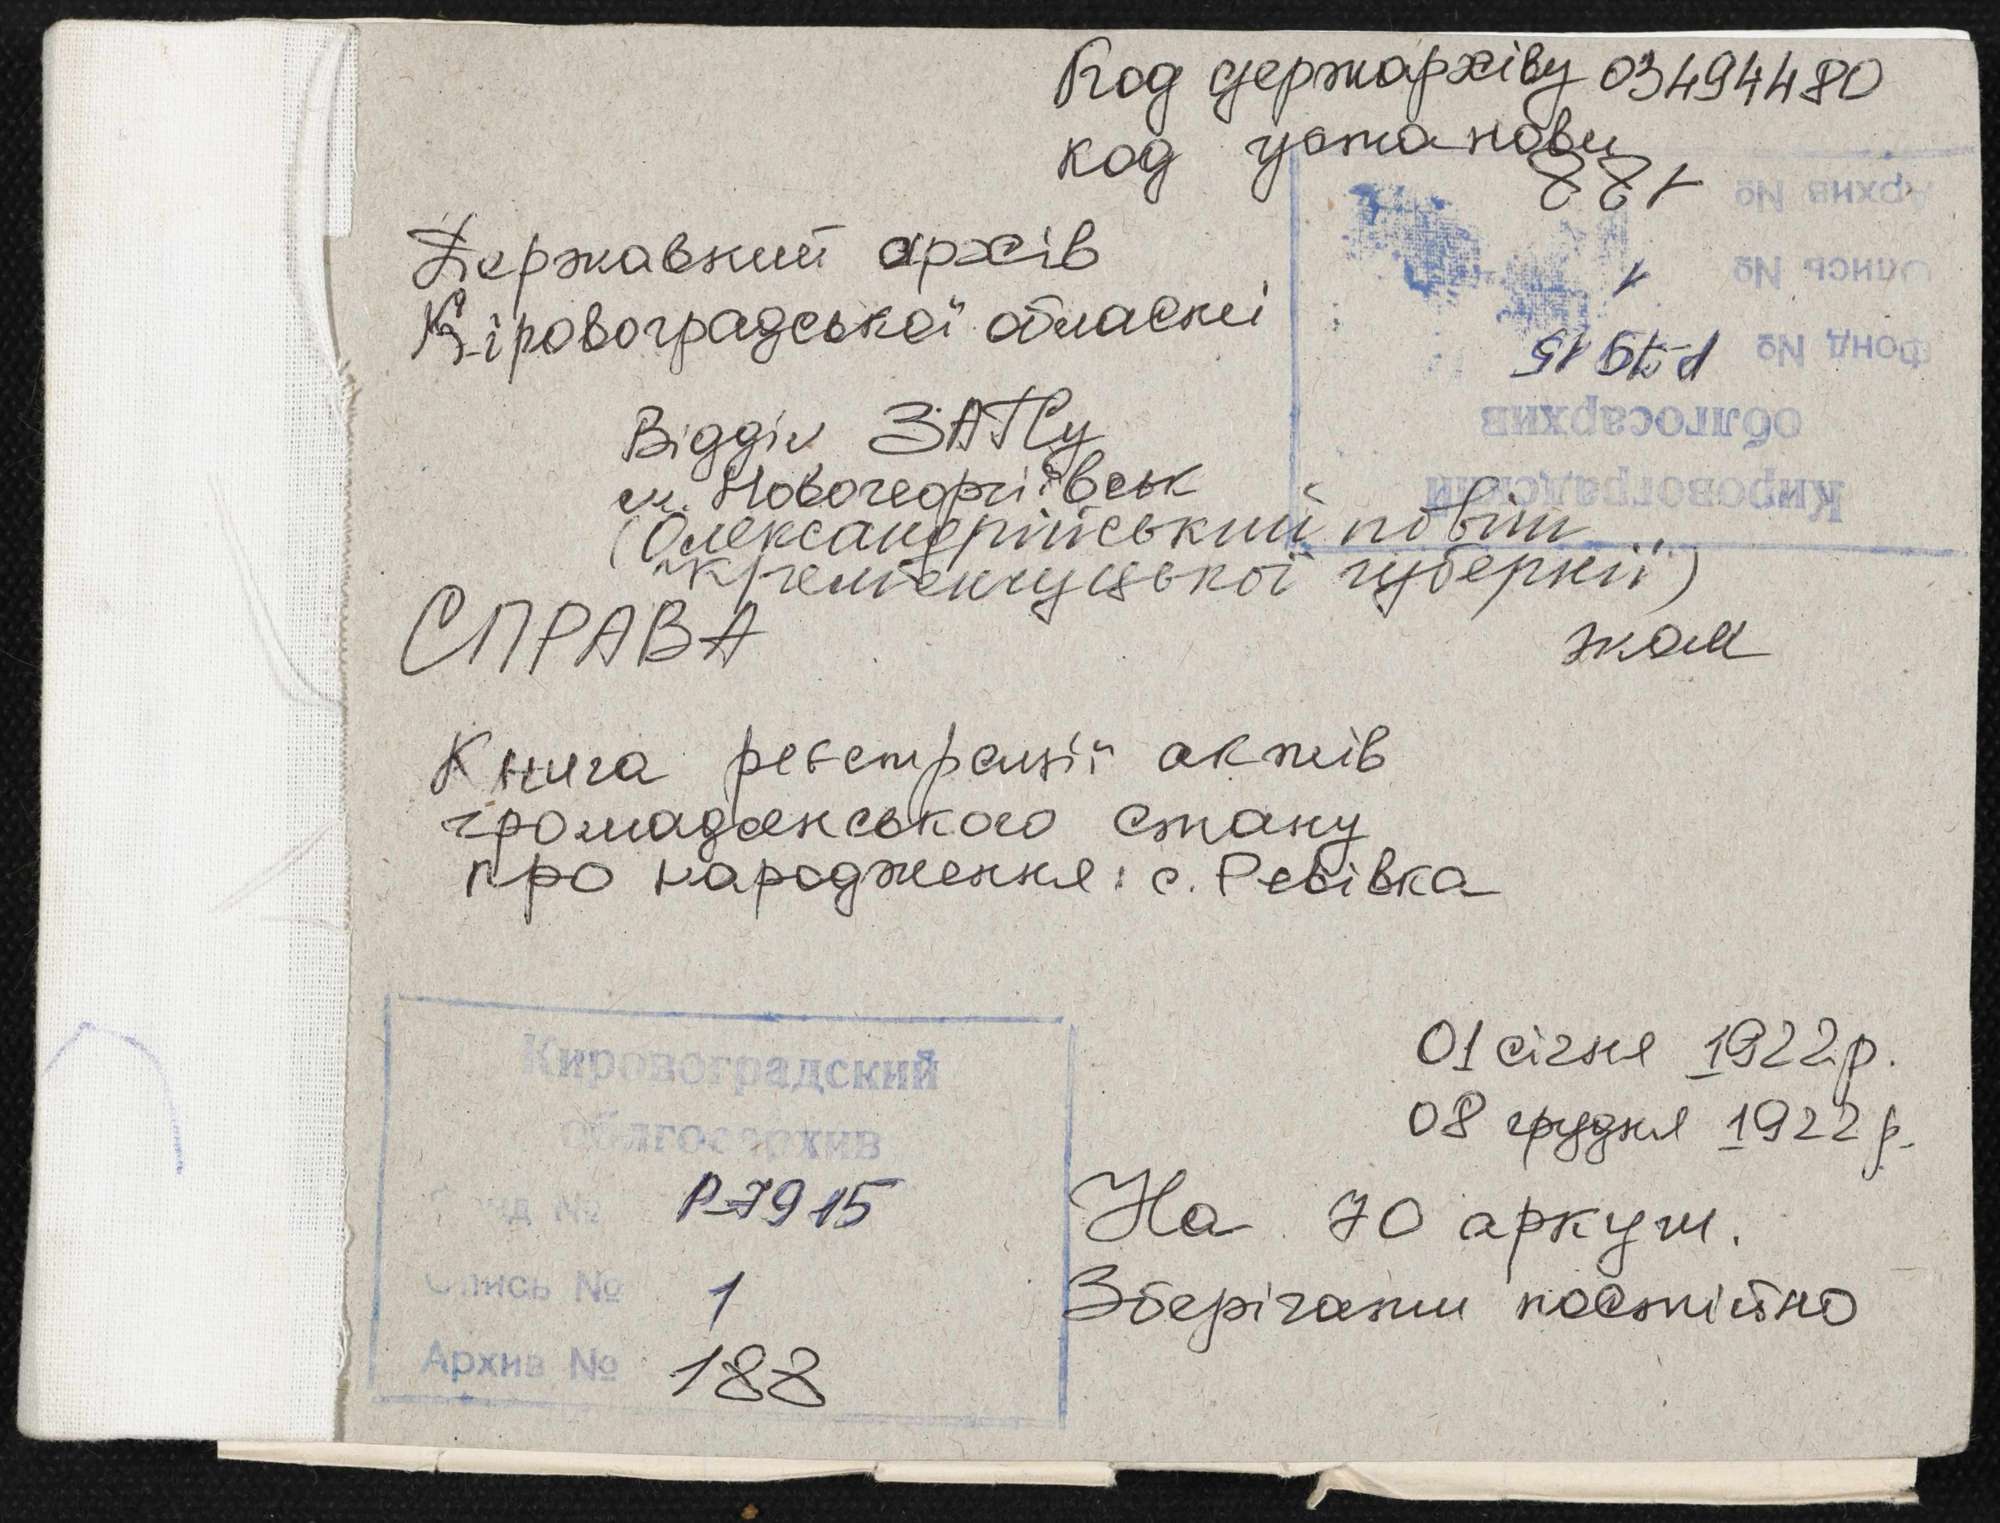 Код держархіву 03494480
код установи
Державний архів
Кіровоградської області
Архив № 188
Опись № 1
Фонд № Р-7915
облгосархив
Кировоградский
Відділ ЗАГСу
м. Новогеоргіївськ
(Олександрійський повіт
Кременчуцької губернії)
СПРАВА
Книга реєстрації актів
громадянського стану
про народження: с. Ревівка
Кировоградский
облгосархив
Фонд № Р-7915
Опись № 1
Архив № 188
01 січня 1922 р.
08 грудня 1922 р.
На 70 аркуш.
Зберігати постійно